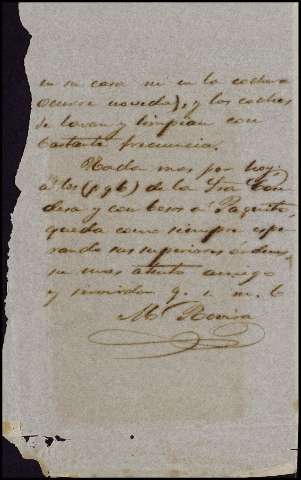 en su casa ni en la cochera
ocurre novedad, y los coches
se lavan y limpian con
bastante frecuencia.
Nada mas por hoy
a los (p g b) de la Sra Con
desa y con besos á Paquito,
queda como siempre espe
rando sus superiores órdenes,
su mas atento amigo
y servidor q. s. m. b
M. Rovira